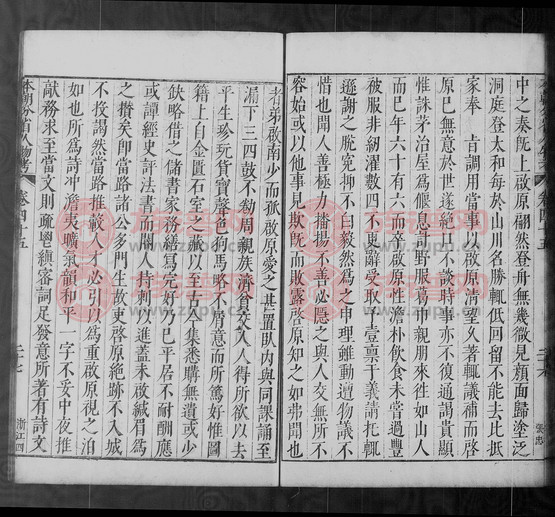 中之奏旣上啟原翩然登舟無幾微見顏面歸塗泛
洞庭登太和每於山川名勝輒低回留不能去比抵
家奉 旨調用當事以啟原清望久著輒議補而啟
原巳無意於世遂終不談時事亦不復通謁貴顯
惟誅茅治屋爲偃息計野服葛巾親朋來徃如山人
而巳年六十有六而卒啟原性澹朴飲食未嘗過豐
被服非紉澣數四不更辭受取予一壹禀于義請托輒
遜謝之脫嬰不白毅然爲之申理雖動遭物議不
惜也聞人善極口揄揚不善必隱之與人交無所不
容始或以他事見欺而敗露啟原知之如弗聞也
者弟啟南少而孤啟原愛之甚置臥内與同課誦至
漏下三四鼓不勌周親族濟貧交人人得所欲以去
平生珍玩貨寶聲色狗馬略不屑意而所篤好惟圖
籍上自金匱石室之藏以至古今集悉購無遺或少
飲略借之儲書家務繕寫完好以巳平居不耐酬應
或譚經史評法書而關人持刺以進葢未啟緘眉爲
之攅矣卽當路諸公多門生故吏啟原絶跡不入城
不投謁然當路推轂人才必引以爲重啟原視之泊
如也所爲詩冲澹夷曠氣韻和平一字不妥中夜推
獻務求至當文則疏鬯縝審詞足發意所著有詩文
本朝分省人物考
卷四十五
二十七
浙江四